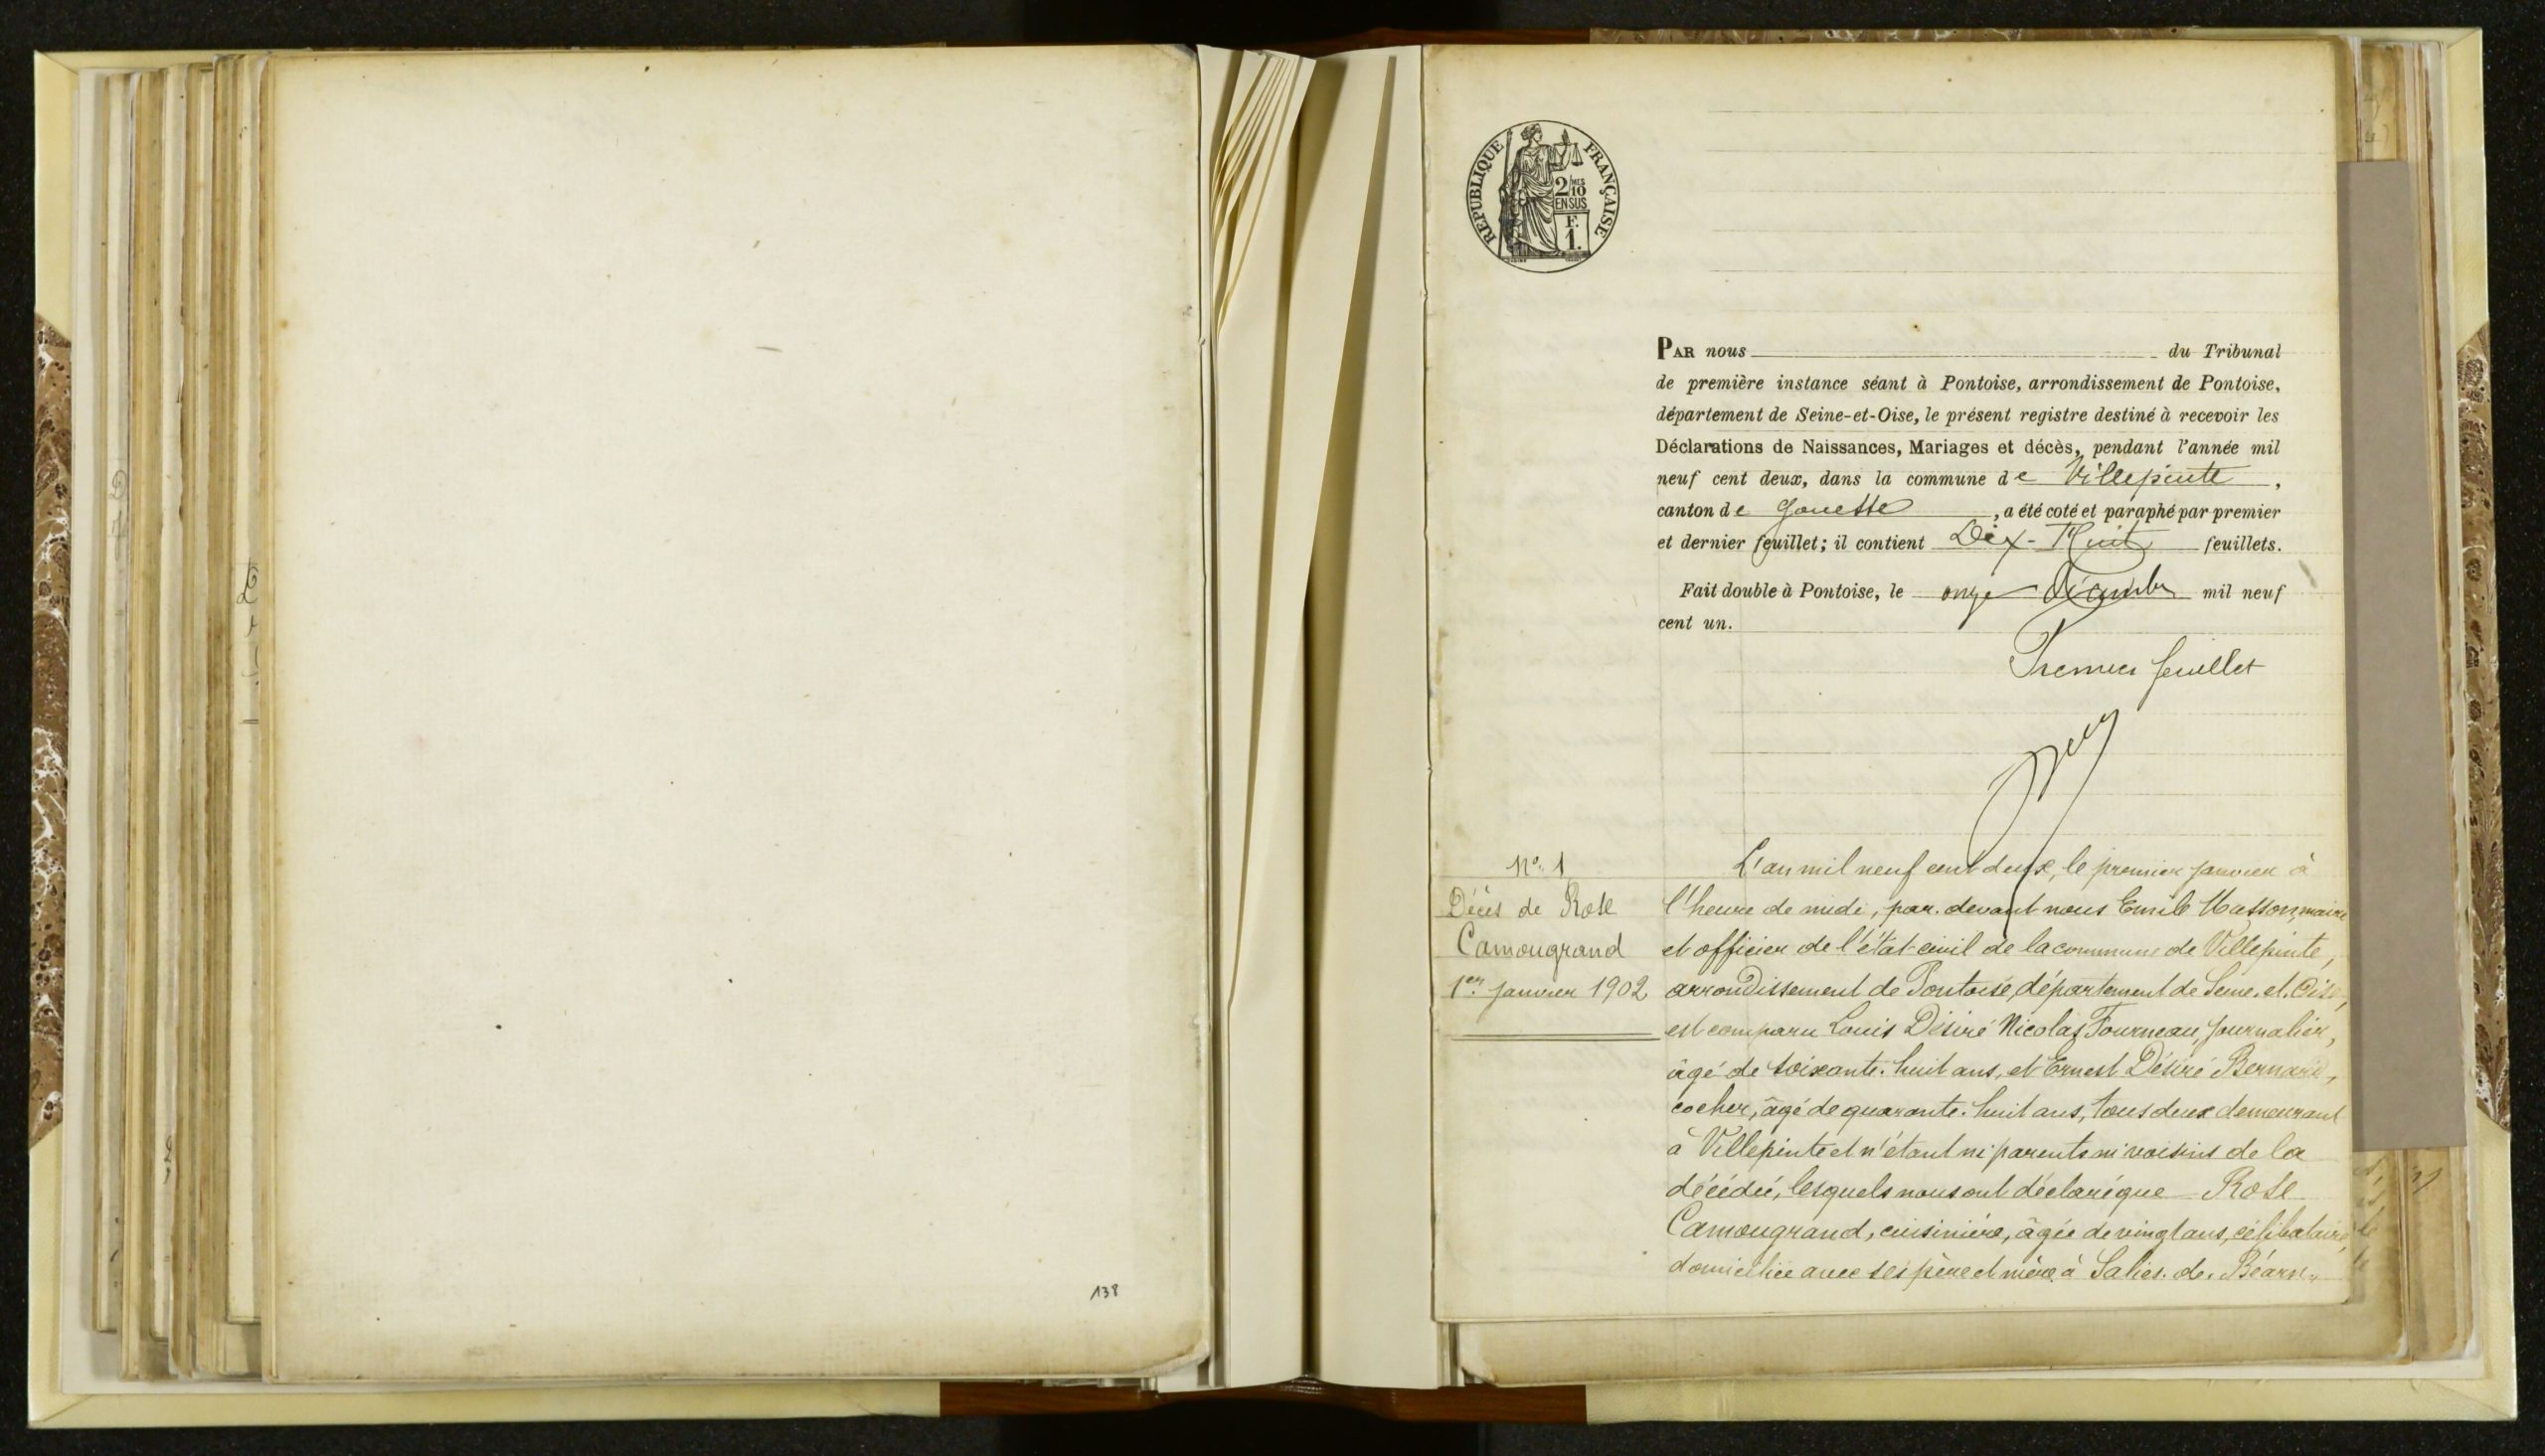 138
RÉPUBLIQUE FRANÇAISE
2/10 MES
EN SUS
F.
1.
PAR nous du Tribunal
de première instance séant à Pontoise, arrondissement de Pontoise,
département de Seine-et-Oise, le présent registre destiné à recevoir les
Déclarations de Naissances, Mariages et décès, pendant l'année mil
neuf cent deux, dans la commune de Villepinte,
canton de Gonesse, a été coté et paraphé par premier
et dernier feuillet; il contient Dix-Huit feuillets.
Fait double à Pontoise, le onze Décembre mil neuf
cent un.
Premier feuillet
N° 1
Décès de Rose
Camougrand
1er Janvier 1902
L'an mil neuf cent deux, le premier Janvier à
l'heure de midi, par-devant nous Emile Masson, maire
et officier de l'état-civil de la commune de Villepinte,
arrondissement de Pontoise, département de Seine-et-Oise,
est comparu Louis Désiré Nicolas Fourneau, Journalier,
âgé de soixante-huit ans, et Ernest Désiré Bernard,
cocher, âgé de quarante-huit ans, tous deux demeurant
à Villepinte et n'étant ni parents ni voisins de la
décédée, lesquels nous ont déclaré que Rose
Camougrand, cuisinière, âgée de vingt ans, célibataire,
domiciliée avec ses père et mère à Salies-de-Béarn,